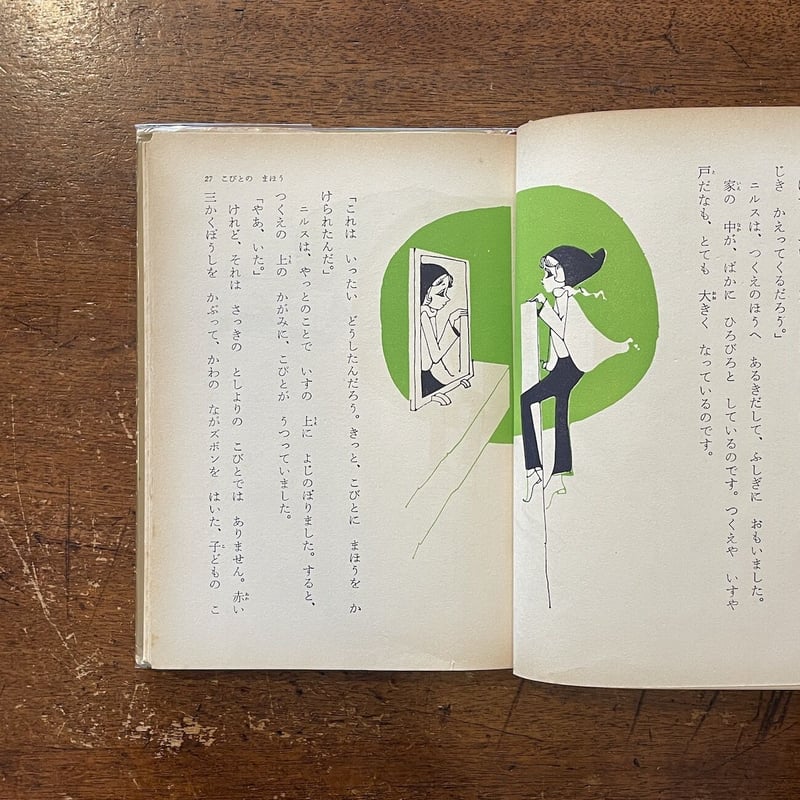 じき　かえってくるだろう。」
ニルスは、つくえのほうへ　あるきだして、ふしぎに　おもいました。
家の　中が、ばかに　ひろびろと　しているのです。つくえや　いすや
戸だなも、とても　大きく　なっているのです。
27　こびとの　まほう
「これは　いったい　どうしたんだろう。きっと、こびとに　まほうを　か
けられたんだ。」
ニルスは、やっとのことで　いすの　上に　よじのぼりました。すると、
つくえの　上の　かがみに、こびとが　うつっていました。
「やあ、いた。」
けれど、それは　さっきの　としよりの　こびとでは　ありません。赤い
三かくぼうしを　かぶって、かわの　ながズボンを　はいた、子どもの　こ